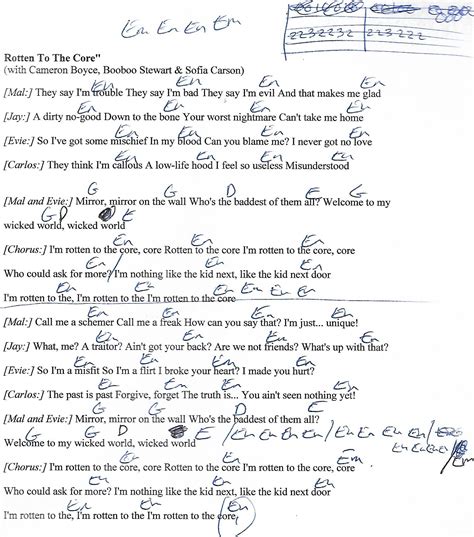 Em Em Em Em
2232232 22322
Rotten To The Core"
(with Cameron Boyce, Booboo Stewart & Sofia Carson)
Em Em Em Em
[Mal:] They say I'm trouble They say I'm bad They say I'm evil And that makes me glad
Em Em Em Em
[Jay:] A dirty no-good Down to the bone Your worst nightmare Can't take me home
Em Em Em Em
[Evie:] So I've got some mischief In my blood Can you blame me? I never got no love
Em Em Em Em
[Carlos:] They think I'm callous A low-life hood I feel so useless Misunderstood
G G D E G
[Mal and Evie:] Mirror, mirror on the wall Who's the baddest of them all? Welcome to my
G D E
wicked world, wicked world
Em Em Em
[Chorus:] I'm rotten to the core, core Rotten to the core I'm rotten to the core, core
Em / Em Em
Who could ask for more? I'm nothing like the kid next, like the kid next door
Em Em Em Em Em
I'm rotten to the, I'm rotten to the I'm rotten to the core
Em Em Em Em
[Mal:] Call me a schemer Call me a freak How can you say that? I'm just... unique!
Em Em Em Em
[Jay:] What, me? A traitor? Ain't got your back? Are we not friends? What's up with that?
Em Em Em Em
[Evie:] So I'm a misfit So I'm a flirt I broke your heart? I made you hurt?
Em Em Em Em
[Carlos:] The past is past Forgive, forget The truth is... You ain't seen nothing yet!
G G D E
[Mal and Evie:] Mirror, mirror on the wall Who's the baddest of them all?
G G D E / Em Em Em Em / Em Em Em Em /
Welcome to my wicked world, wicked world
Em Em Em Em / Em
Em Em Em
[Chorus:] I'm rotten to the core, core Rotten to the core I'm rotten to the core, core
Em Em Em
Who could ask for more? I'm nothing like the kid next, like the kid next door
Em Em Em
I'm rotten to the, I'm rotten to the I'm rotten to the core,